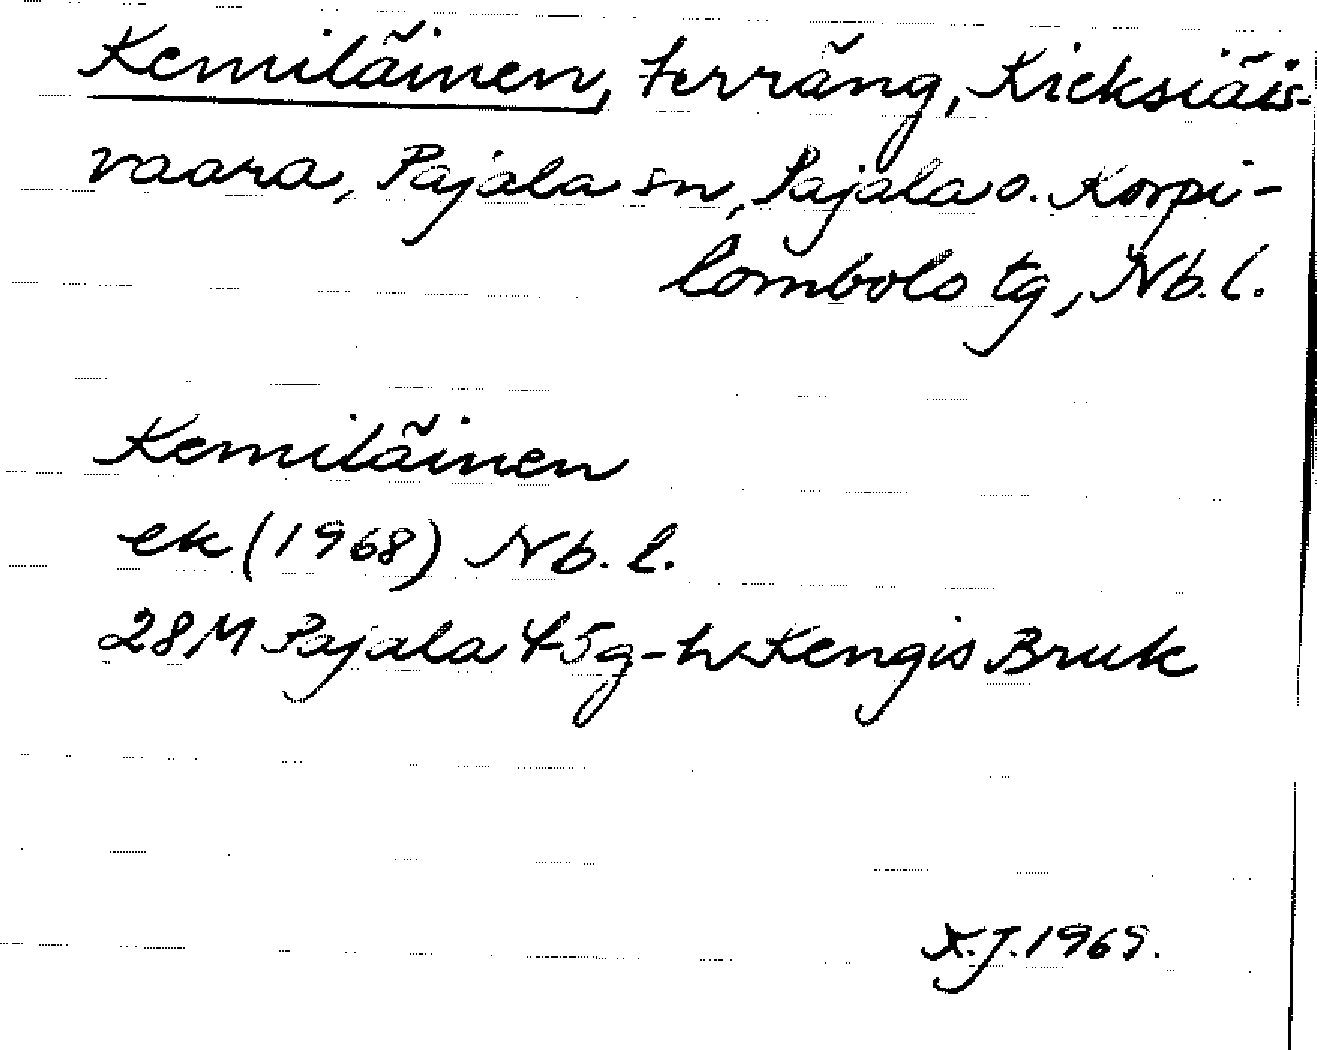 Kemiläinen, terräng, Kieksiäis-
vaara, Pajala sn, Pajala o. Korpi-
lombolo tg, Nb. l.
Kemiläinen
ek (1968) Nb. l.
28M Pajala 45g-h Kengis Bruk
K.J. 1969.